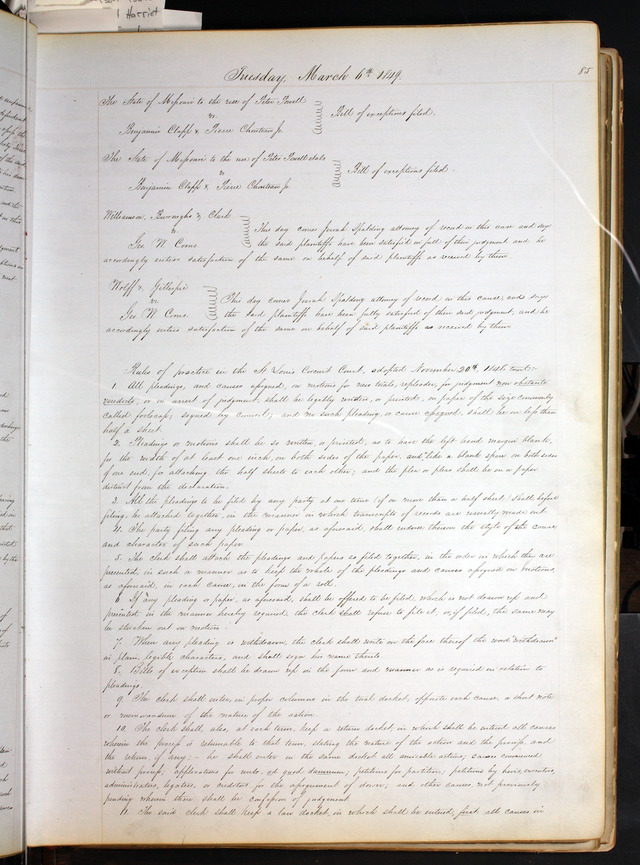 Harriet
Tuesday, March 6th 1849.
85
The State of Missouri to the use of Peter Powell
vs.
Bill of exceptions filed.
Benjamin Clapp & Pierre Chouteau Jr.
The State of Missouri to the use of Peter Powell
vs
Bill of exceptions filed.
Benjamin Clapp & Pierre Chouteau Jr
Williamson, Burroughs & Clark
vs.
Geo W. Coons
This day comes Josiah Spalding attorney of record in this case and says
the said plaintiffs have been satisfied in full of their judgment and he
accordingly enters satisfaction of the same on behalf of said plaintiffs as received by them
Wolff & Gillespie
vs
Geo W. Coons.
This day comes Josiah Spalding attorney of record in this cause, and says
the said plaintiffs have been fully satisfied of their said judgment, and he
accordingly enters satisfaction of the same on behalf of said plaintiffs as received by them
Rules of practice in the St Louis Circuit Court, adopted November 20th,
1. All pleadings, and causes assigned, on motions for new trials, repleader, for judgment non obstante
veredicto, or in arrest of judgment, shall be legibly written, or printed, on paper of the size commonly
called foolscap; signed by counsel; and no such pleading, or cause assigned, shall be on less than
half a sheet.
2. Pleadings or motions shall be so written, or printed, as to have the left hand margin blank,
for the width of at least one inch, on both sides of the paper, and like a blank space on both sides
of one end, for attaching the half sheets to each other; and the plea or pleas shall be on a paper
distinct from the declaration.
3. All the pleadings to be filed by any party at one term (if on more than a half sheet) shall before
filing, be attached together, in the manner in which transcripts of records are usually made out
4. The party filing any pleading or paper, as aforesaid, shall endorse thereon the style of the cause
and character of such paper
5. The clerk shall attach the pleadings and papers so filed together, in the order in which the are
presented, in such a manner as to keep the whole of the pleadings and causes assigned on motions,
as aforesaid, in each cause, in the form of a roll.
6. If any pleading or paper, as aforesaid, shall be offered to be filed, which is not drawn up and
presented in the manner hereby required the clerk shall refuse to file it, or, if filed, the same may
be stricken out on motion
7. When any pleading is withdrawn, the clerk shall write on the face thereof the word "withdrawn"
in plain, legible characters, and shall sign his name thereto
8. Bills of exception shall be drawn up in the form and manner as is required in relation to
pleadings.
9. The clerk shall enter, in proper columns in the trial docket, opposite each cause, a short note
or memorandum of the nature of the action.
10. The clerk shall, also, at each term, keep a return docket, in which shall be entered all causes
wherein the process is returnable to that term, stating the nature of the action and the process, and
the return, if any; - he shall enter in the same docket all amicable actions, causes commenced
without process, applications for writs, ad quod damnum; petitions for partition; petitions by heirs, executors,
administrators, legatees, or creditors for the assignment of dower; and other causes not previously
pending wherein there shall be confession of judgment
11. The said clerk shall keep a law docket, in which shall be entered, first all causes in